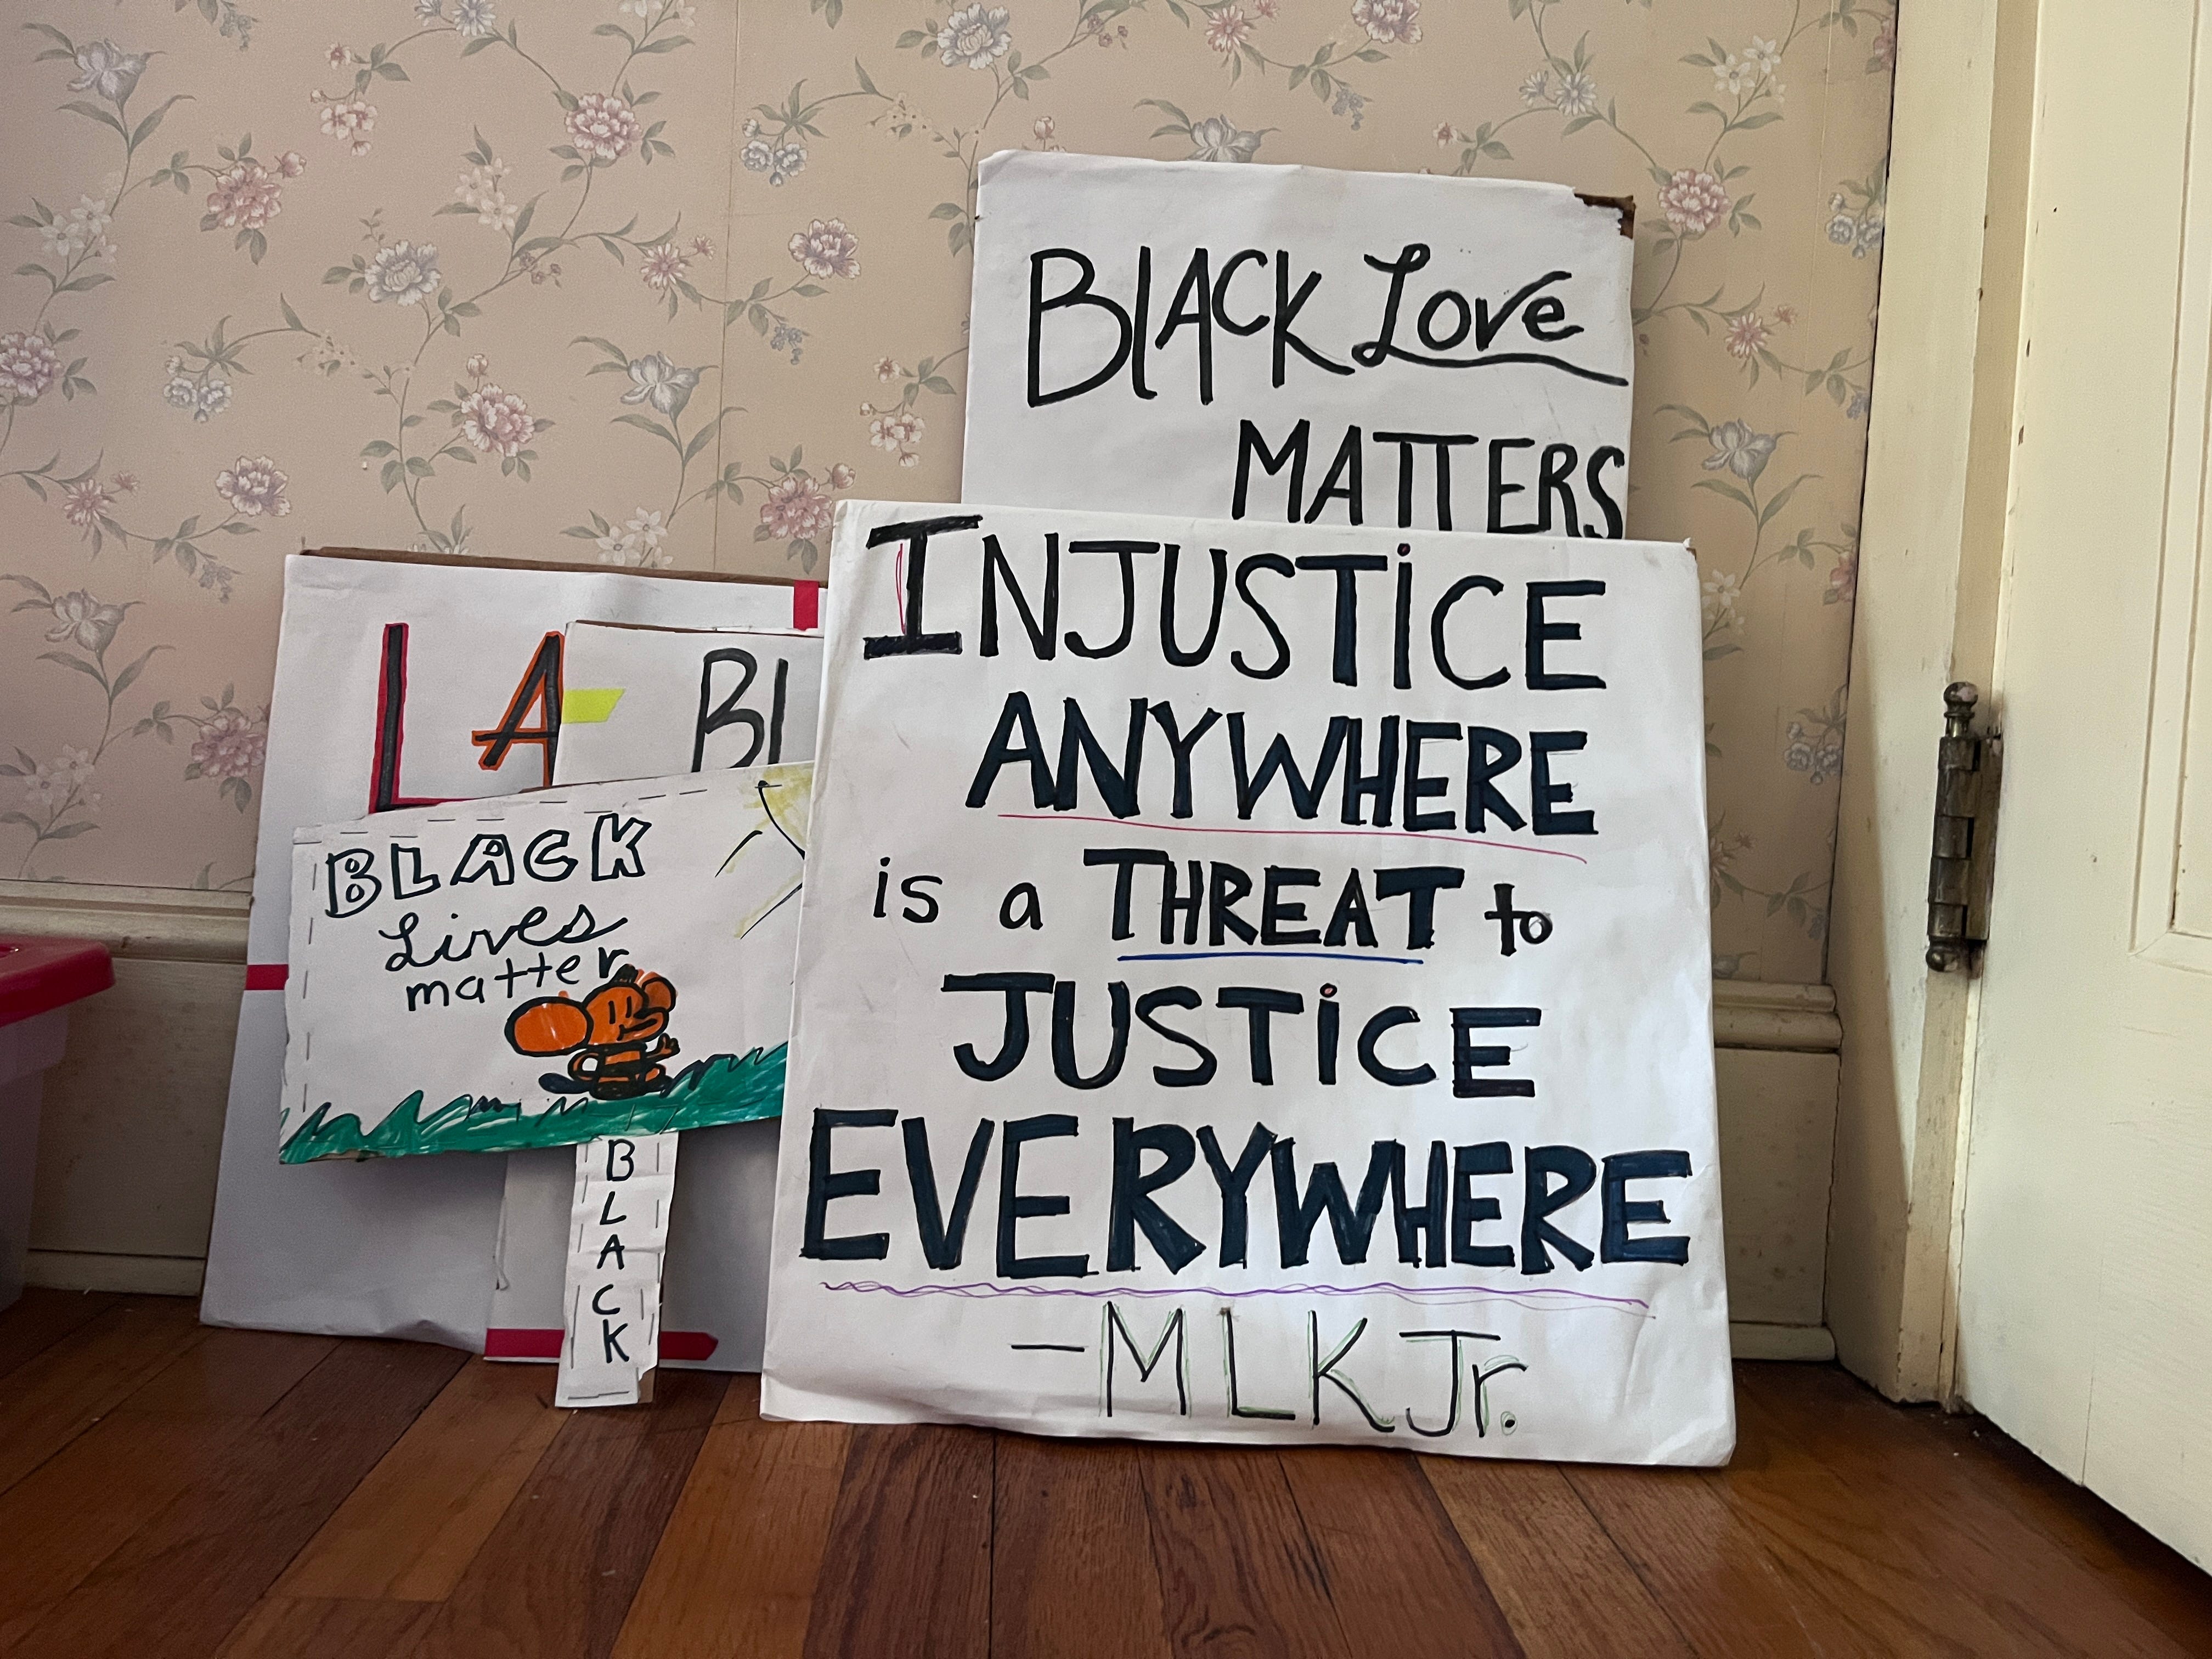 BLACK Love
MATTERS
INJUSTICE
ANYWHERE
is a THREAT to
JUSTICE
EVERYWHERE
- MLK Jr.
LA
Bl
BLACK
Lives
matter
BLACK